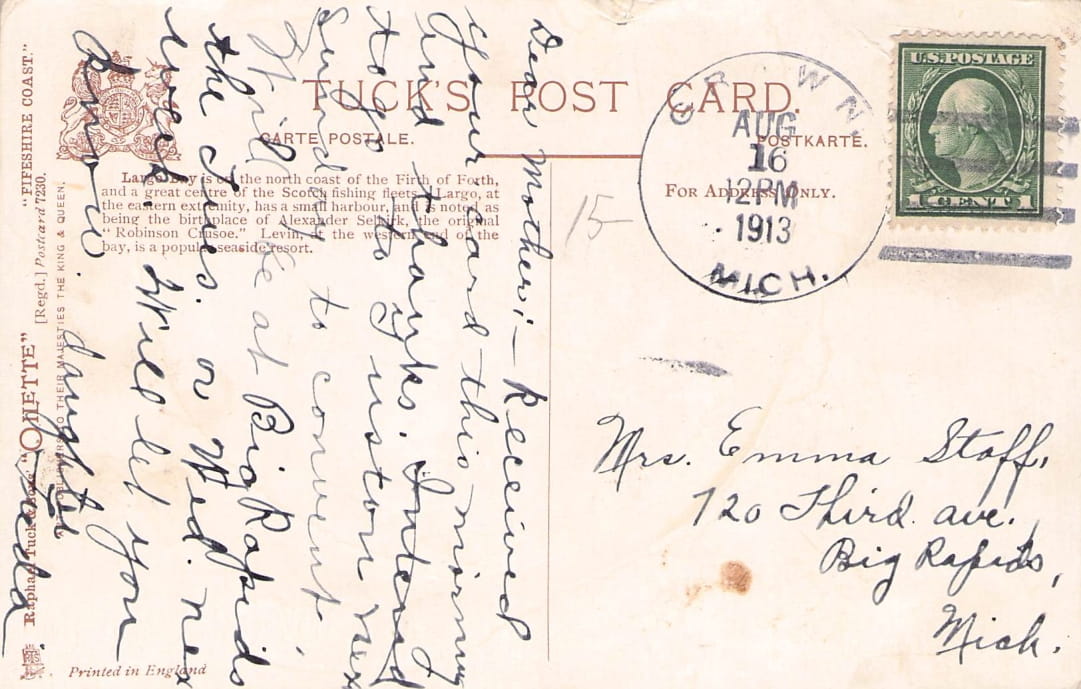 TUCK'S POST CARD.
CARTE POSTALE.
POSTKARTE.
FOR ADDRESS ONLY.
Largo Bay is on the north coast of the Firth of Forth,
and a great centre of the Scotch fishing fleets. Largo, at
the eastern extremity, has a small harbour, and is noted as
being the birthplace of Alexander Selkirk, the original
"Robinson Crusoe." Leven, at the western end of the
bay, is a popular seaside resort.
Dear Mother:- Received
your card this morning
and thanks. Intend
to go to next
Sunday to
Will be at Big Rapids
the Tues. or Wed. nex
week. Will let you
know.
daughter
U.S. POSTAGE
1 CENT 1
AUG
16
12 PM
1913
MICH.
15
Mrs. Emma Staff,
720 Third ave.,
Big Rapids,
Mich.
Raphael Tuck & Sons' "OILETTE" [Regd.] Postcard 7230. "FIFESHIRE COAST."
ART PUBLISHERS TO THEIR MAJESTIES THE KING & QUEEN.
Printed in England